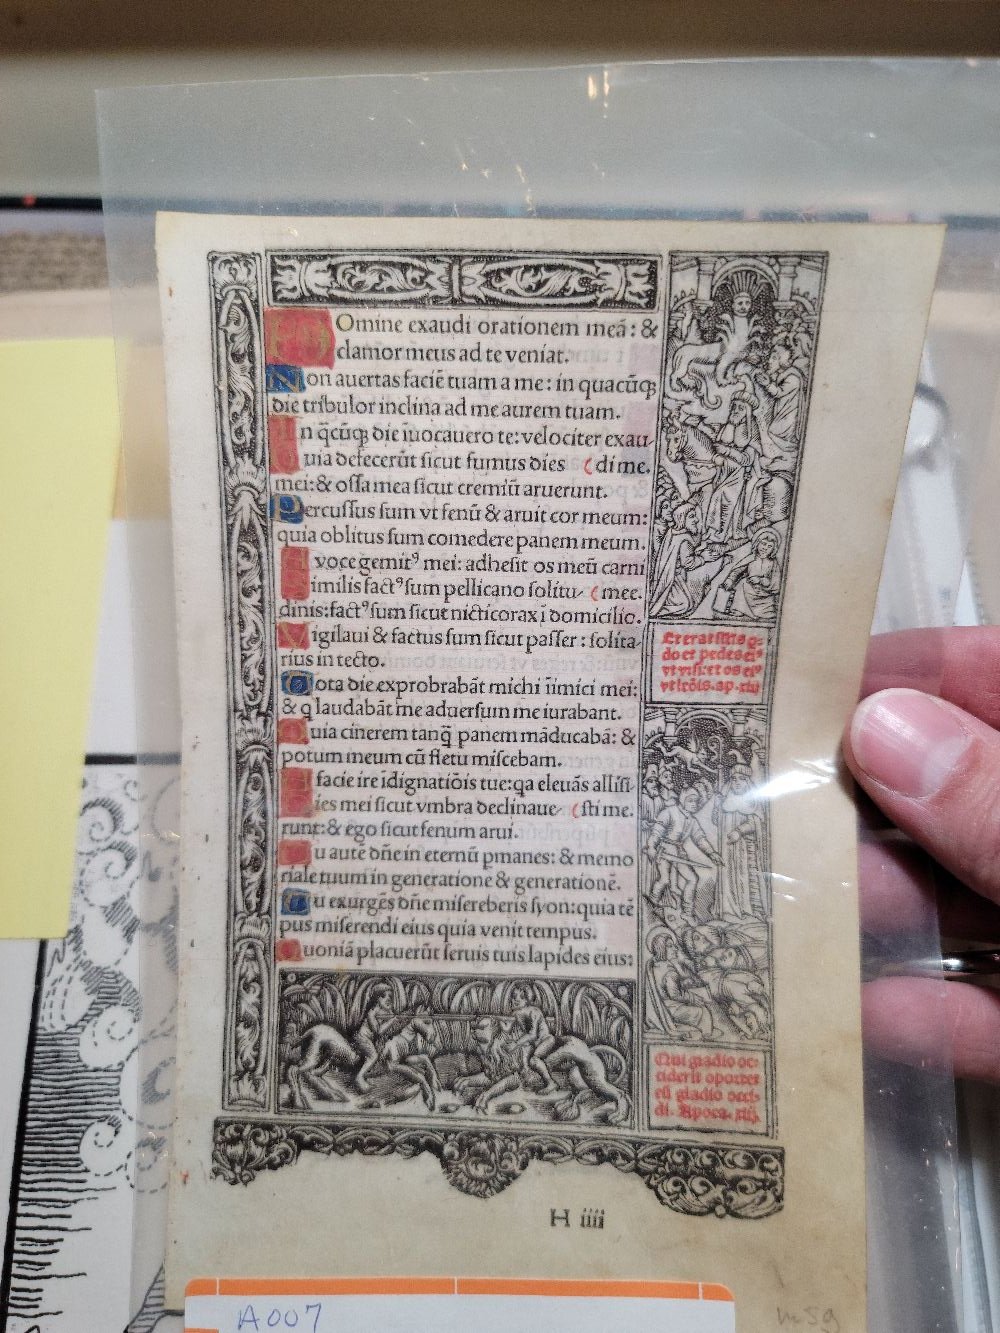 DOmine exaudi orationem meã: &
clamor meus ad te veniat.
Non auertas faciẽ tuam a me: in quacũqꝫ
die tribulor inclina ad me aurem tuam.
In q̃cũqꝫ die ĩuocauero te: velociter exau
Quia defecerũt sicut fumus dies (di me.
mei: & ossa mea sicut cremiũ aruerunt.
Percussus sum vt fenũ & aruit cor meum:
quia oblitus sum comedere panem meum.
A voce gemitꝰ mei: adhesit os meũ carni
Similis factꝰ sum pellicano solitu- (mee.
dinis: factꝰ sum sicut nicticorax ĩ domicilio.
Vigilaui & factus sum sicut passer: solita-
rius in tecto.
Tota die exprobrabãt michi ĩimici mei:
& q laudabãt me aduersum me iurabant.
Quia cinerem tanq̃ panem mãducabã: &
potum meum cũ fletu miscebam.
A facie ire ĩdignatiõis tue: qa eleuãs allisi-
Dies mei sicut vmbra declinaue- (sti me.
runt: & ego sicut fenum arui.
Tu autẽ dñe in eternũ pmanes: & memo
riale tuum in generatione & generationẽ.
Tu exurgẽs dñe misereberis syon: quia tẽ
pus miserendi eius quia venit tempus.
Quoniã placuerũt seruis tuis lapides eius:
Et erat similis q̃-
do et pedes eiꝰ
vt vrsi: et os eiꝰ
vt leõis. ap. xiij
Qui gladio oc-
ciderit oportet
eũ gladio occi-
di. Apoca. xiij.
H iiii
A007